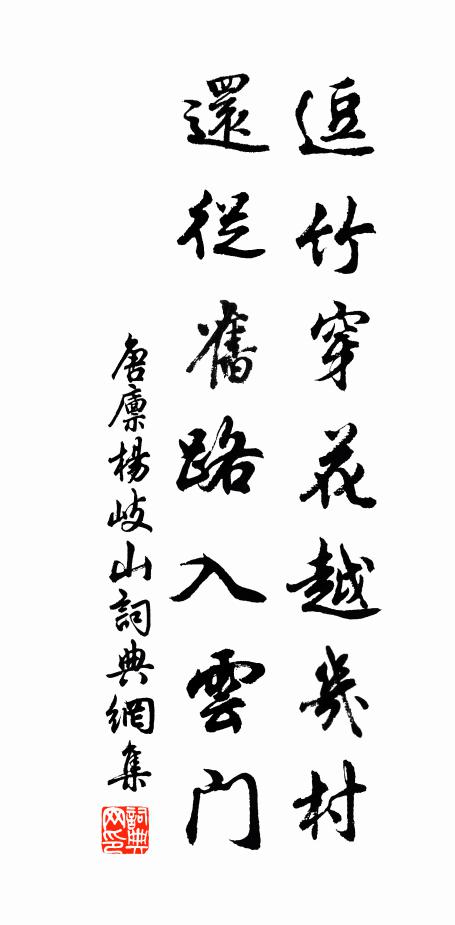 逗竹穿花越幾村
還從舊路入雲門
唐廩楊岐山詞典網集
詞典網印